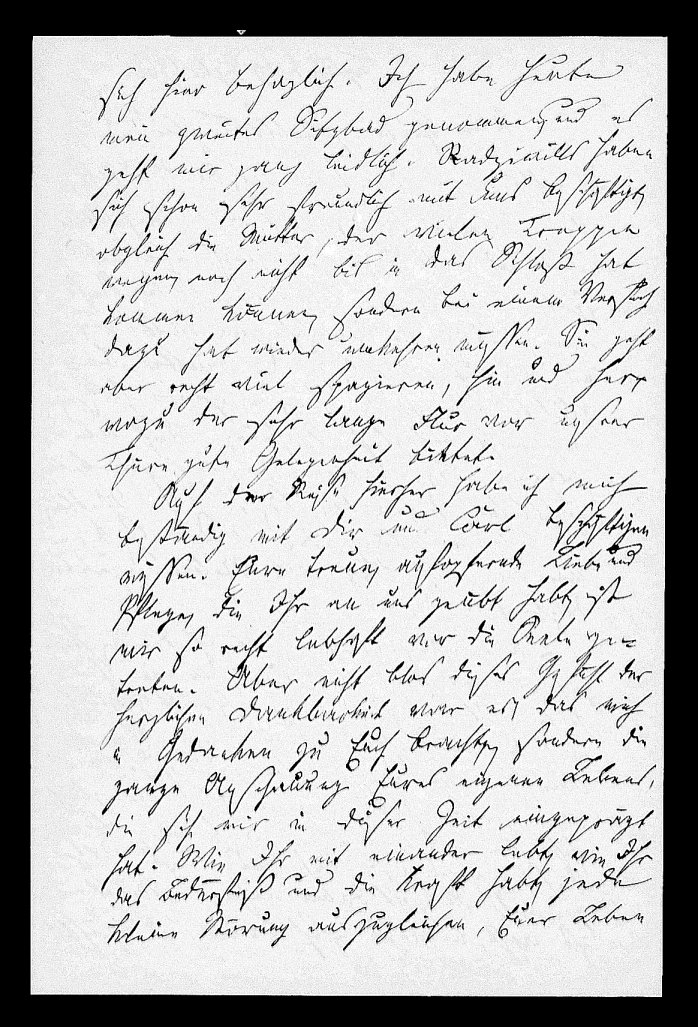 sich hier behaglich. Ich habe heute
mein zweites Sitzbad genommen, und es
geht mir ganz leidlich. Radziwills haben
sich schon sehr freundlich mit uns beschäftigt,
obgleich die Mutter, der vielen Treppen
wegen, noch nicht bis in das Schloß hat
kommen können, sondern bei einem Versuch
dazu hat wieder umkehren müssen. Sie geht
aber recht viel spazieren, hin und her,
wozu der sehr lange Flur vor unserer
Thüre gute Gelegenheit bietet.
Auf der Reise hierher habe ich mich
beständig mit Dir und Carl beschäftigen
müssen. Eure treue, aufopfernde Liebe und
Pflege, die Ihr an uns geübt habt, ist
mir so recht lebhaft vor die Seele ge-
treten. Aber nicht blos dieses Gefühl der
herzlichen Dankbarkeit war es, das mich
in Gedanken zu Euch brachte, sondern die
ganze Anschauung Eures eigenen Lebens,
die sich mir in dieser Zeit eingeprägt
hat. Wie Ihr mit einander lebt, wie Ihr
das Bedürfniß und die Kraft habt, jede
kleine Störung auszugleichen, Euer Leben